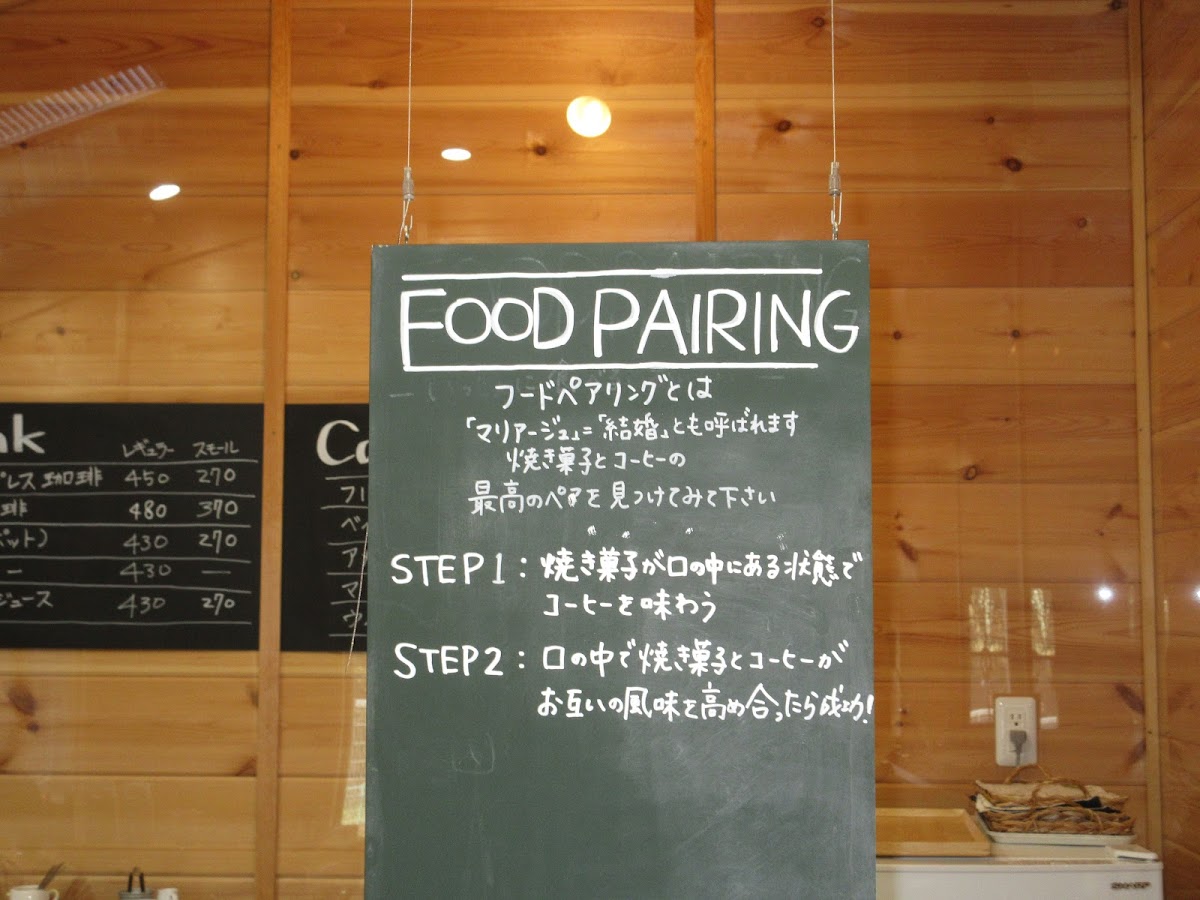 FOOD PAIRING
フードペアリングとは
「マリアージュ」=「結婚」とも呼ばれます
焼き菓子とコーヒーの
最高のペアを見つけてみて下さい
STEP1:焼き菓子が口の中にある状態で
コーヒーを味わう
STEP2:口の中で焼き菓子とコーヒーが
お互いの風味を高め合ったら成功!
nk レギュラー スモール
プレス珈琲 450 270
珈琲 480 370
ポット) 430 270
ー 430 —
ジュース 430 270
Ca
フ
ベイ
ア
マ
ウ
SHARP